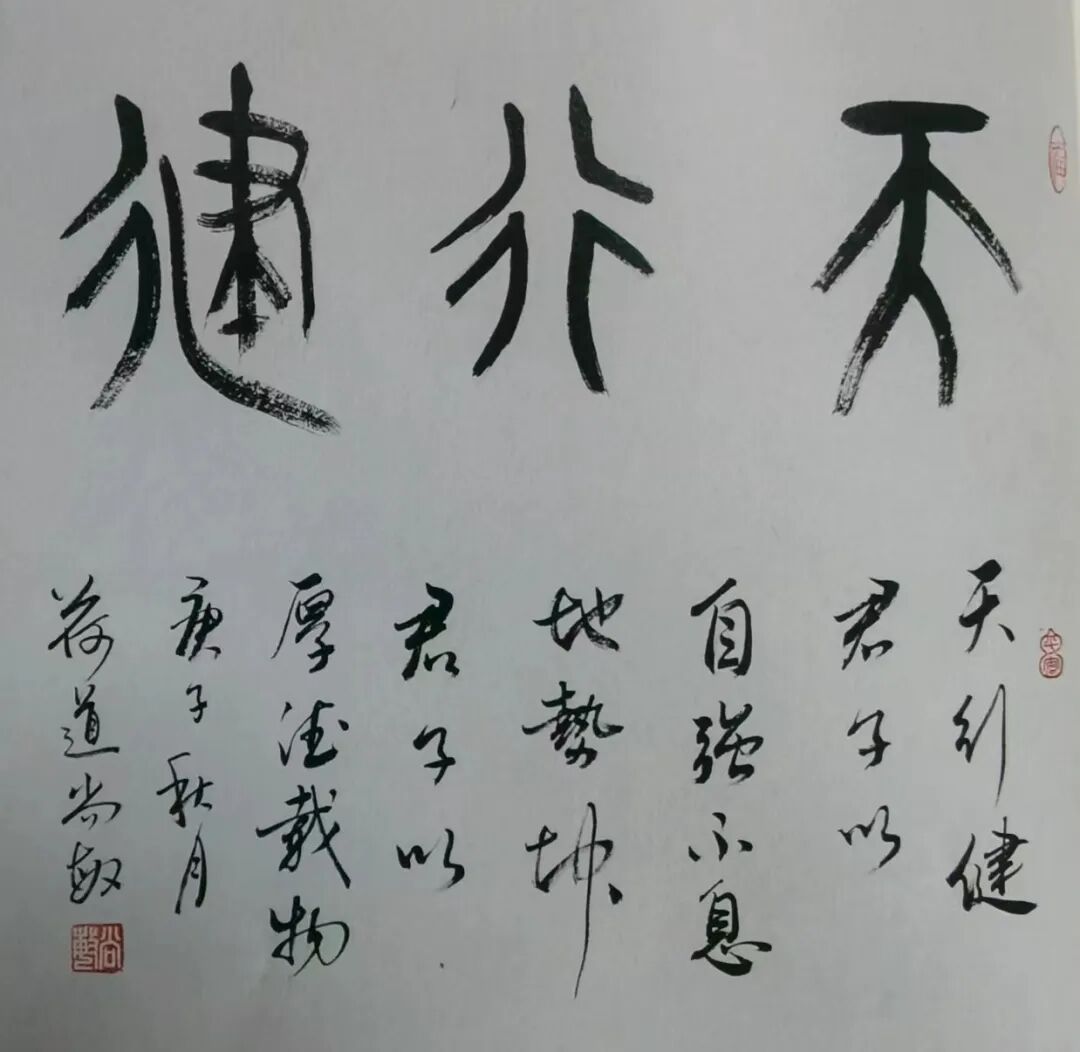 天行健
天行健
君子以
自强不息
地勢坤
君子以
厚德載物
庚子秋月
荷道尚敏